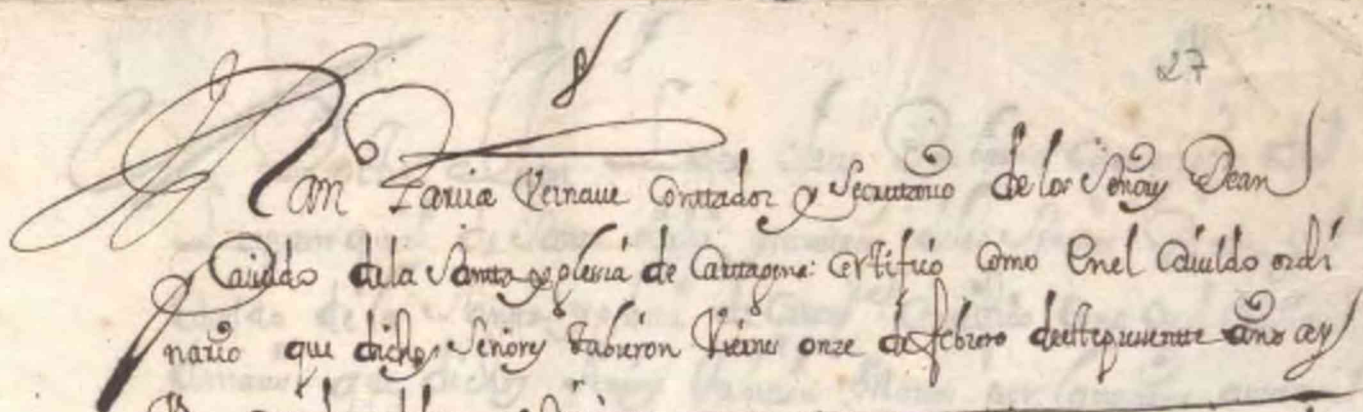 27
Juan Garcia contador y Secretario de los Señores Dean
y Cauildo de la Santa yglesia de Cartagena: certifico como en el Cauildo ordi
nario que dichos Señores tubieron Viernes onze de febrero de este presente año